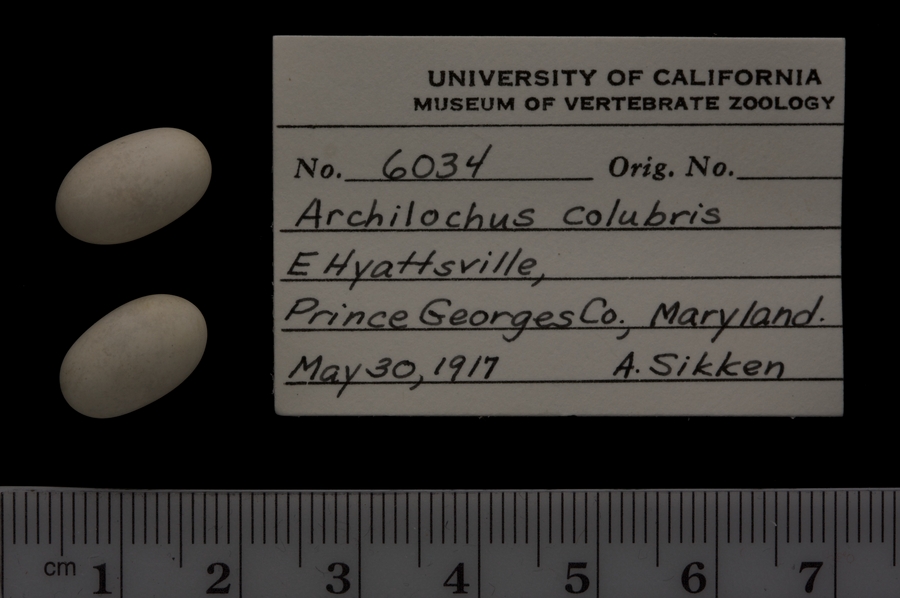 UNIVERSITY OF CALIFORNIA
MUSEUM OF VERTEBRATE ZOOLOGY
No. 6034 Orig. No.
Archilochus colubris
E Hyattsville,
Prince Georges Co., Maryland.
May 30, 1917 A. Sikken
cm 1 2 3 4 5 6 7